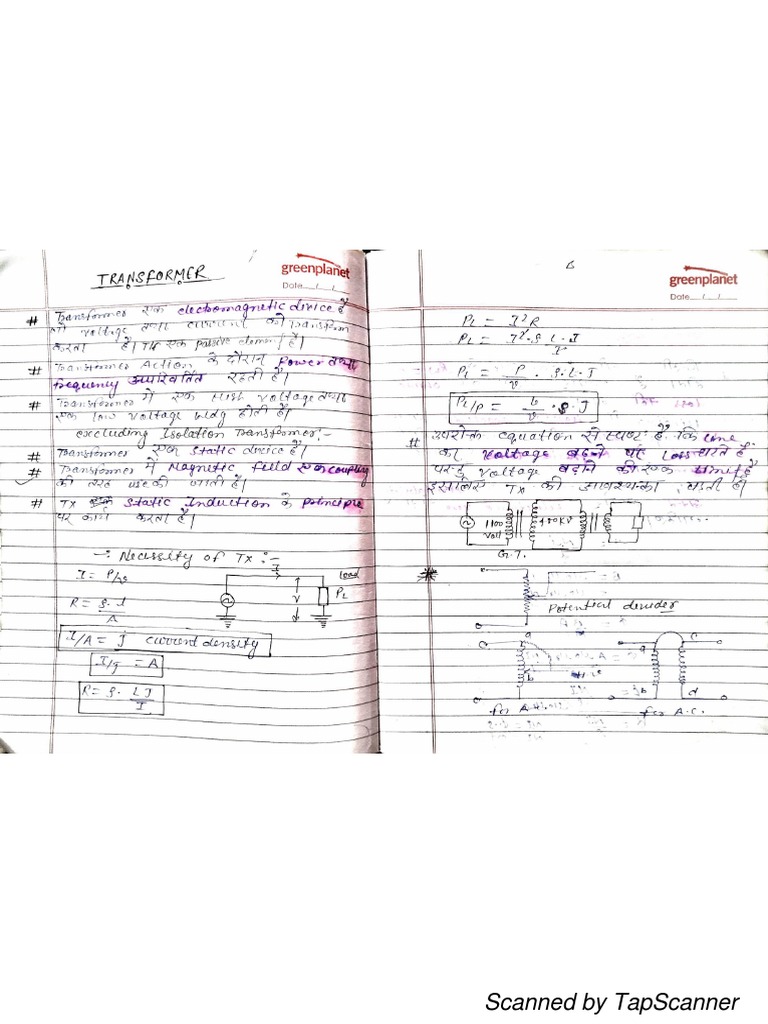 TRANSFORMER
greenplanet
Date / /
# Transformer एक electromagnetic device है
जो voltage तथा current को transform
करता है। TX एक passive element है।
# Transformer Action के दौरान Power तथा
frequency अपरिवर्तित रहती है।
# Transformer में एक High voltage तथा
एक low voltage wdg होती है।
excluding Isolation Transformer:-
# Transformer एक static device है।
# Transformer में Magnetic field coupling
की तरह use की जाती है।
# TX static Induction के principle
पर कार्य करता है।
-: Necessity of TX :-
I = P/v
I
load
R = ρ. l
A
V
PL
I/A = J current density
I/J = A
R = ρ. L J
I
greenplanet
Date / /
PL = I²R
PL = I². ρ L. J
I
PL = P . ρ. L. J
v
PL/P = L . ρ. J
v
# उपरोक्त equation से स्पष्ट है कि line
का voltage बढ़ाने पर Loss घटते हैं
परंतु voltage बढ़ाने की एक limit है
इसलिए TX की आवश्यकता पड़ती है।
1100
volt
400KV
G.T.
Potential
a
b
a
c
b
d
for
for A.C.
Scanned by TapScanner